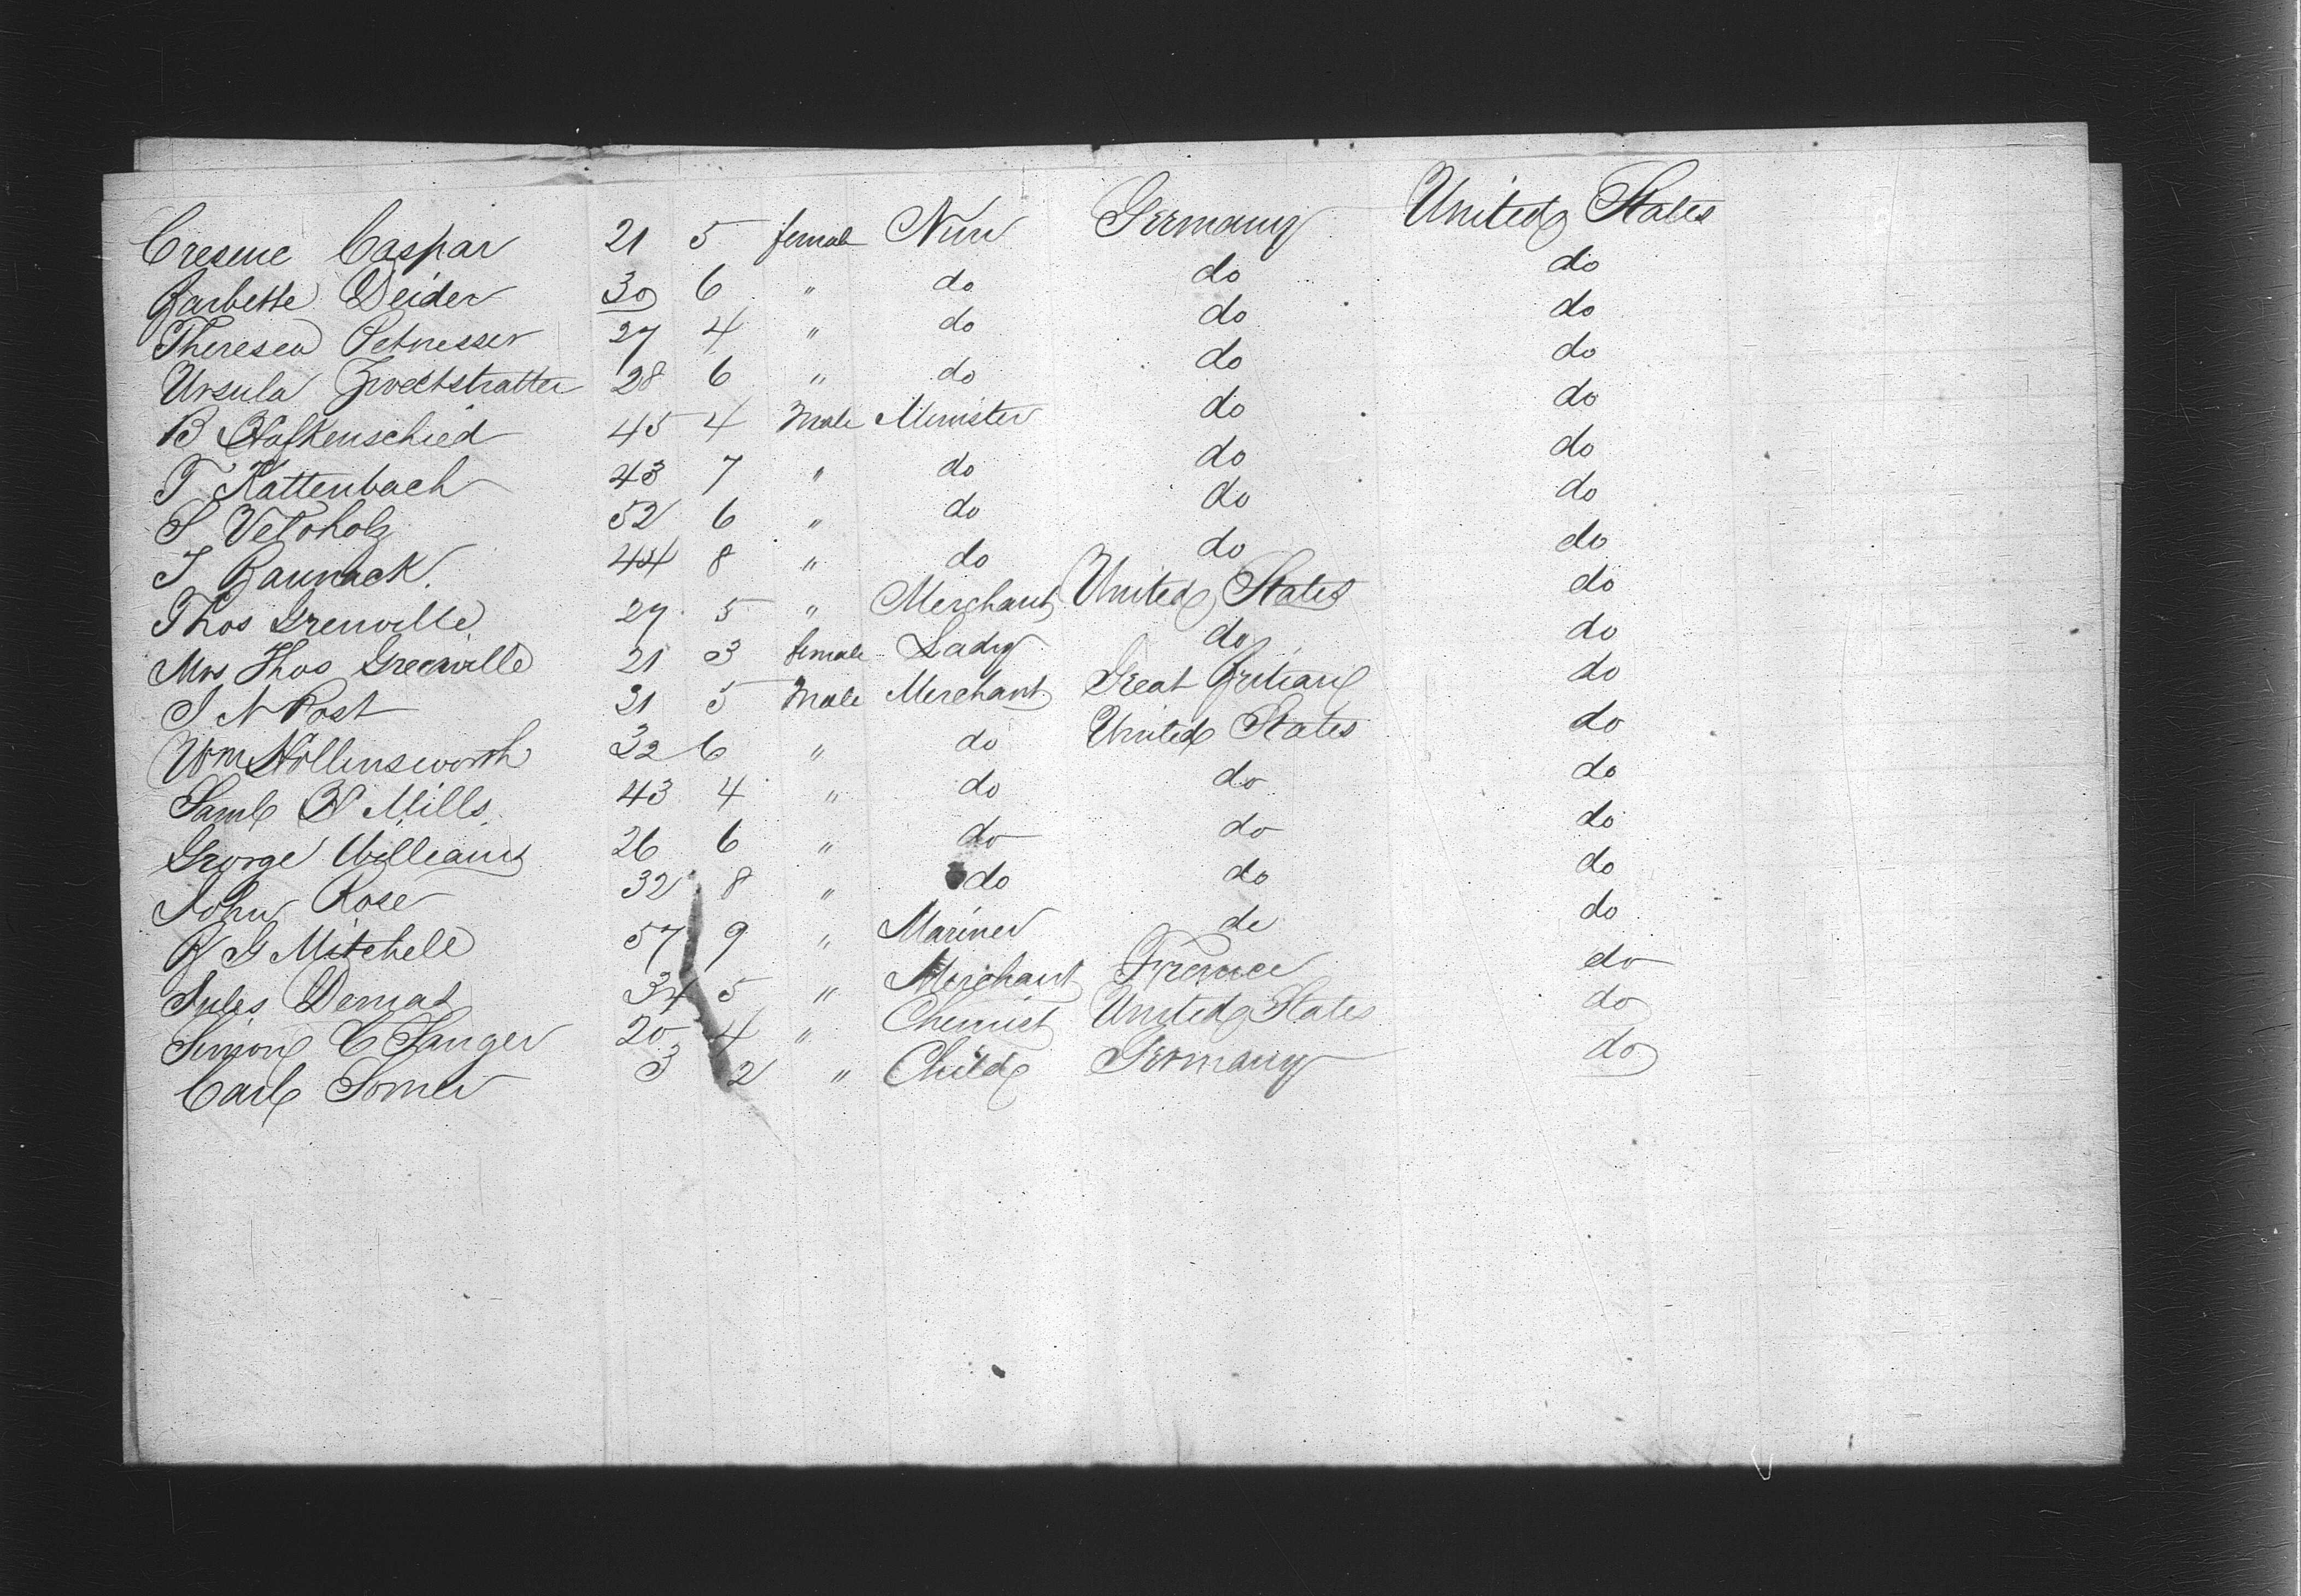 Cresene Caspar 21 5 female Nun Germany United States
Barbette Deider 30 6 " do do do
Theresea Petnesser 27 4 " do do do
Ursula Zwectstratter 28 6 " do do do
B Hafkenschied 45 4 Male Minister do do
T Kattenbach 43 7 " do do do
S Vetoholz 52 6 " do do do
J Baunack. 44 8 " do do do
Thos Grenville 27 5 " Merchant United States do
Mrs Thos Greenville 21 3 female Lady do do
J N Post 21 5 Male Merchant Great Britian do
Wm Hollinsworth 32 6 " do United States do
Saml H Mills 43 4 " do do do
George Williams 26 6 " do do do
John Rose 32 8 " do do do
B G Mitchell 57 9 " Mariner do do
Jules Demat 34 5 " Merchant France do
Simon C Sanger 20 4 " Chemist United States do
Carl Somer 3 2 " Child Germany do